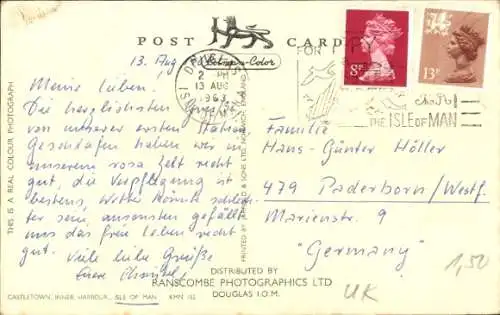 POST CARD
Colour
13. Aug.
DOUGLAS
2 PM
13 AUG
ISLE OF MAN
FOR
THE ISLE OF MAN
8P
13P
Meine Lieben.
Die herzlichsten Grüße
von unserer ersten Station.
Geschlafen haben wir in
unserem rosa Zelt recht
gut, die Verpflegung ist
bestens, Wetter könnte schlech-
ter sein, ansonsten gefällt
uns das freie Leben recht
gut. Viele liebe Grüße
Eure
Familie
Hans-Günter Höller
479 Paderborn/Westf.
Marienstr. 9
"Germany"
1,50
UK
THIS IS A REAL COLOUR PHOTOGRAPH
PRINTED BY JARROLD & SONS LTD, NORWICH, ENGLAND
DISTRIBUTED BY
RANSCOMBE PHOTOGRAPHICS LTD
DOUGLAS I.O.M.
CASTLETOWN, INNER HARBOUR, ISLE OF MAN KMN 152